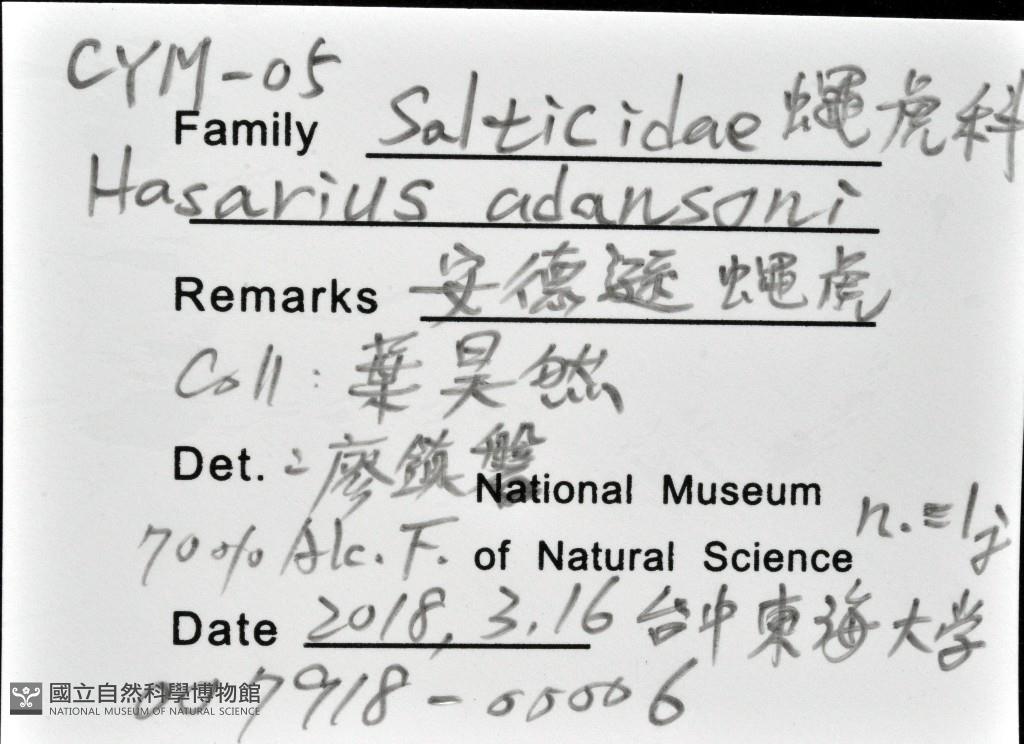 CYM-05
Family Salticidae 蠅虎科
Hasarius adansoni
Remarks 安德遜蠅虎
Coll: 葉昊然
Det.: 廖鎮磐
National Museum
70% Alc. F. of Natural Science n.=1j
Date 2018, 3, 16 台中東海大学
7918-00006
國立自然科學博物館
NATIONAL MUSEUM OF NATURAL SCIENCE